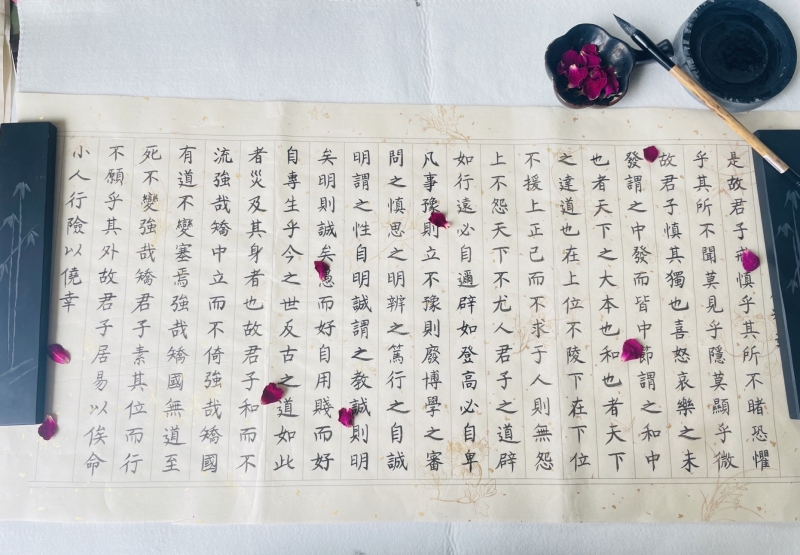 是故君子戒慎乎其所不睹恐懼
乎其所不聞莫見乎隱莫顯乎微
故君子慎其獨也喜怒哀樂之未
發謂之中發而皆中節謂之和中
也者天下之大本也和也者天下
之達道也在上位不陵下在下位
不援上正己而不求于人則無怨
上不怨天下不尤人君子之道辟
如行遠必自邇辟如登高必自卑
凡事豫則立不豫則廢博學之審
問之慎思之明辨之篤行之自誠
明謂之性自明誠謂之教誠則明
矣明則誠矣愚而好自用賤而好
自專生乎今之世反古之道如此
者災及其身者也故君子和而不
流強哉矯中立而不倚強哉矯國
有道不變塞焉強哉矯國無道至
死不變強哉矯君子素其位而行
不願乎其外故君子居易以俟命
小人行險以僥幸